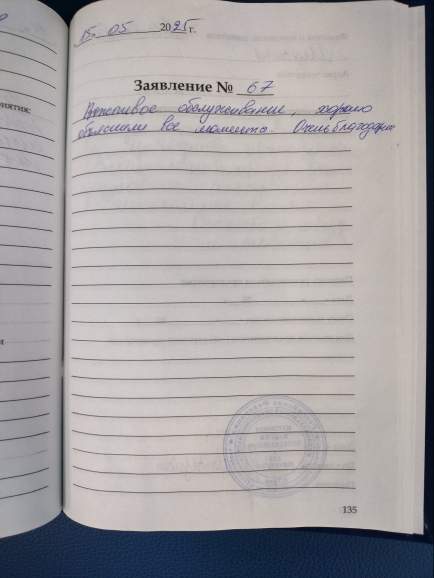 15. 05 2025 г.
Заявление № 67
Вежливое обслуживание, хорошо
объяснили все моменты. Очень благодарна
135
иятия: